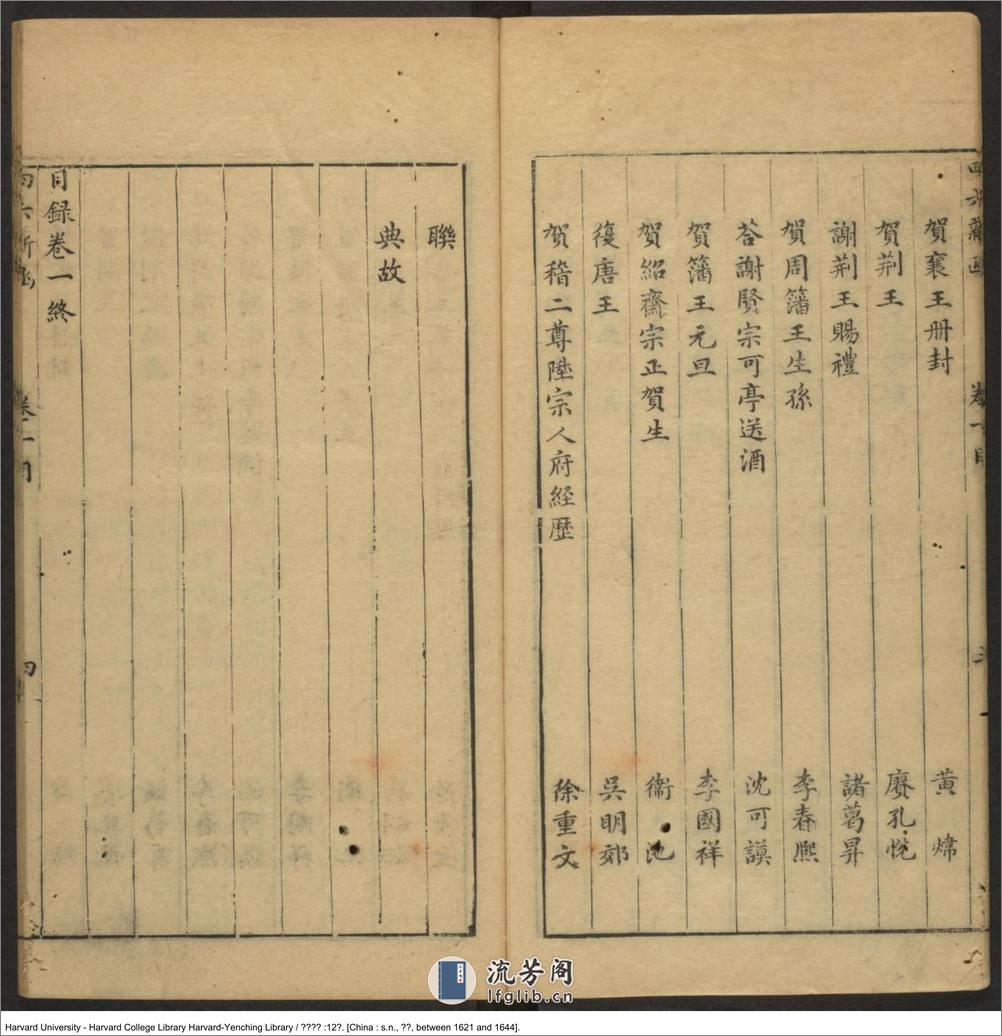 賀襄王册封　黃　煒
賀荆王　廖孔悅
謝荆王賜禮　諸葛昇
賀周藩王生孫　李春熈
荅謝賢宗可亭送酒　沈可謨
賀藩王元旦　李國祥
賀紹齋宗正賀生　衞　池
復唐王　吳明郊
賀稽二尊陞宗人府經歷　徐重文
聯
典故
目錄卷一終
四六新函　卷一目　四
流芳阁
lfglib.cn
Harvard University - Harvard College Library Harvard-Yenching Library / ???? :12?. [China : s.n., ??, between 1621 and 1644].